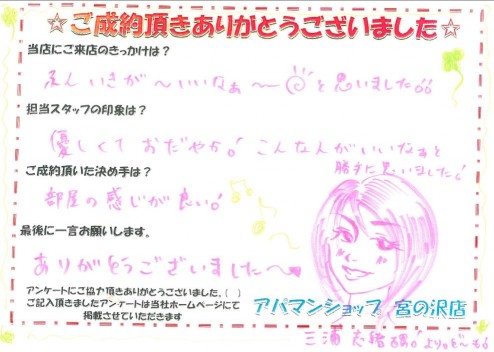 ☆ご成約頂きありがとうございました☆
当店にご来店のきっかけは？
ふんいきが～いいなぁ～と思いました!!
担当スタッフの印象は？
優しくておだやか！こんな人がいいなぁと
勝手に思いました！
ご成約頂いた決め手は？
部屋の感じが良い！
最後に一言お願いします。
ありがとうございました～
アンケートにご協力頂きありがとうございました。(　)
ご記入頂きましたアンケートは当社ホームページにて
掲載させていただきます
アパマンショップ 宮の沢店
三浦
より